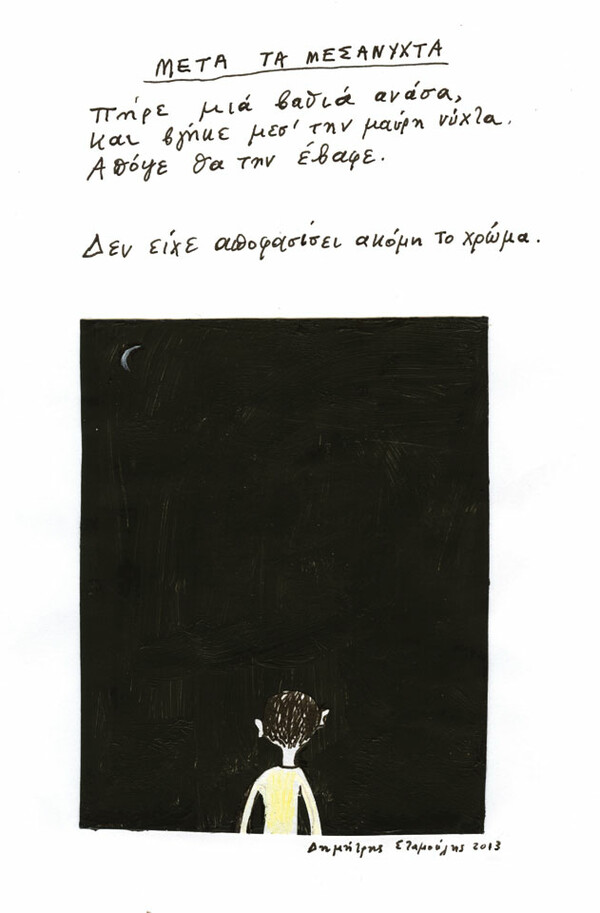 ΜΕΤΑ ΤΑ ΜΕΣΑΝΥΧΤΑ
Πήρε μιά βαθιά ανάσα,
και βγήκε μεσ' την μαύρη νύχτα.
Απόψε θα την έβαφε.
Δεν είχε αποφασίσει ακόμη το χρώμα.
Δημήτρης Σταμούλης 2013